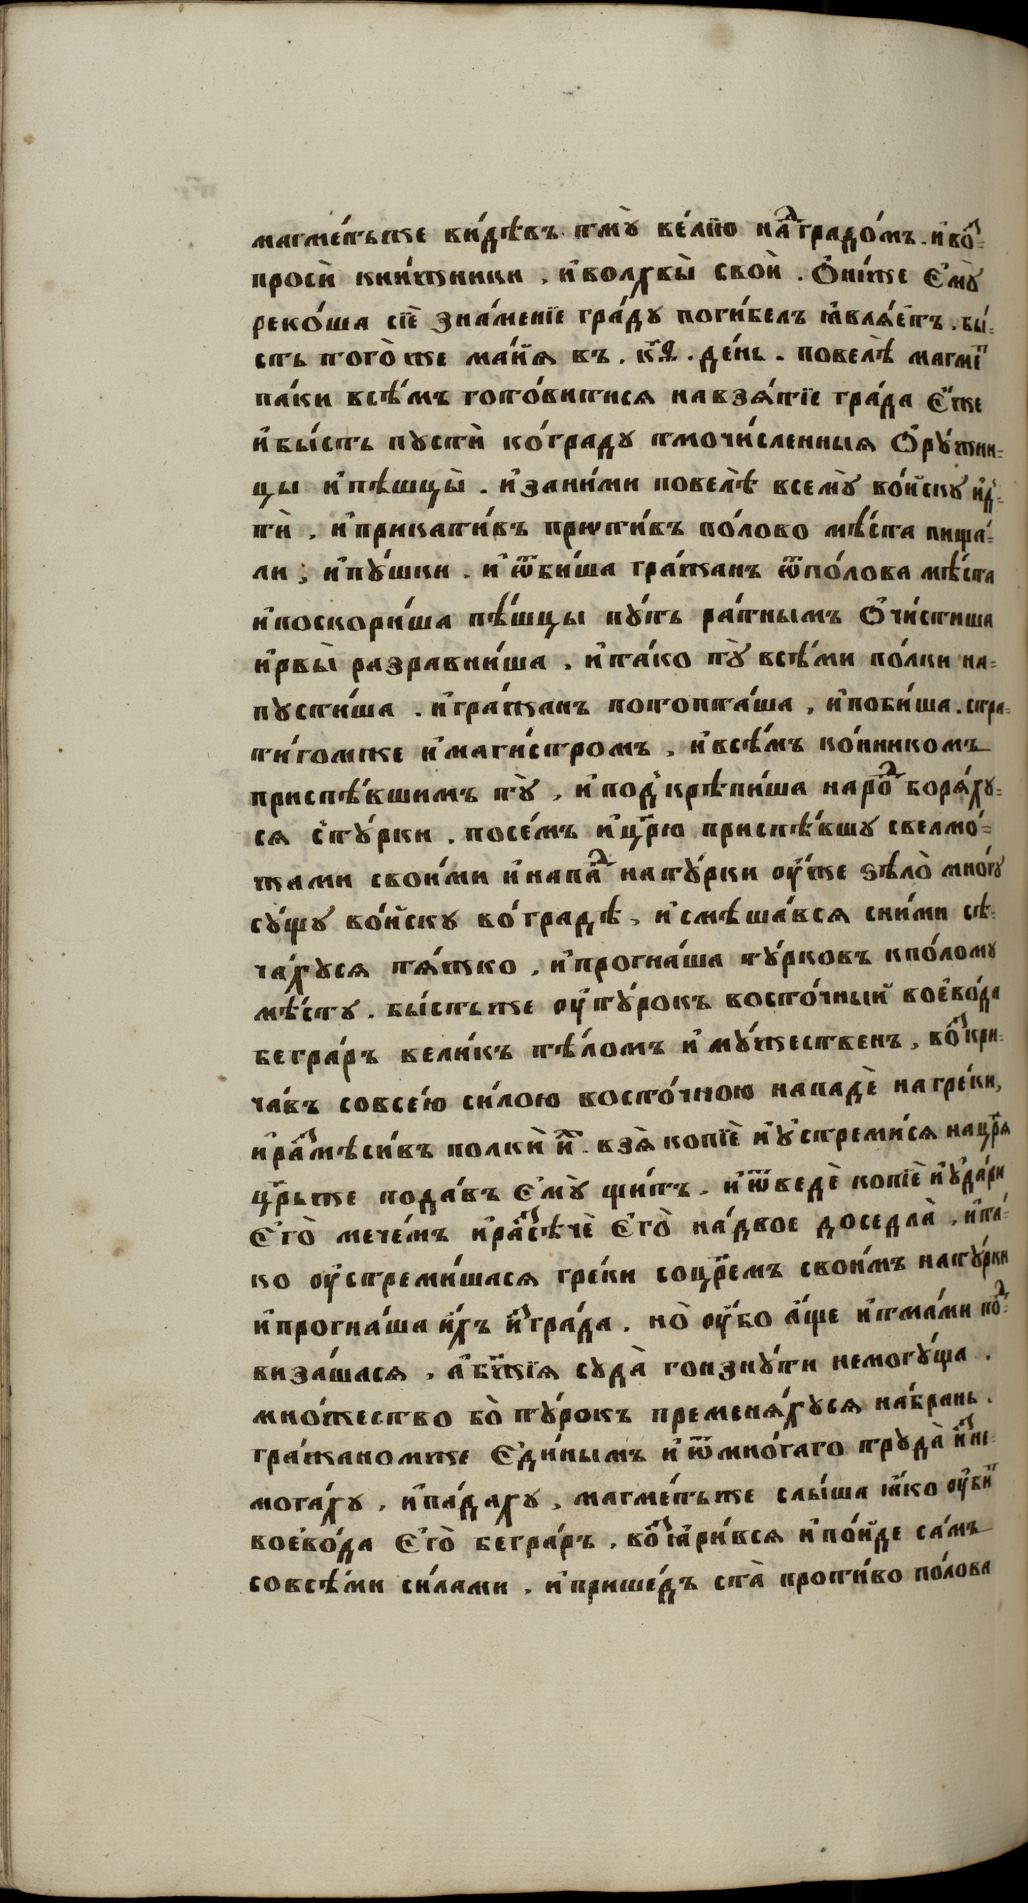 магме́тьже ви́дѣвъ тму̀ ве́лїю на́дградо́мъ. и҆во̑с=
проси̂ кни́жники, и҆волхвы̀ своѝ. Ѻ҆ни́же є҆му̀
реко́ша сїѐ зна́менїе гра́ду поги́бель ꙗ҆вля́етъ. бы́=
сть того̀же ма́їа въ. к҃ѕ. де́нь. повелѣ̀ магме́т
па́ки всѣ́мъ гото́витися навзя́тїе гра́да є҆́же
и҆бы́сть пустѝ ко́граду тмочи́сленныя Ѻ҆ру́жни=
цы и҆пѣшцы̀. и҆зани́ми повелѣ̀ всему̀ во́йску и҆д=
тѝ, и҆прикати́въ прѡти́въ по́лово мѣ́ста пища́=
ли; и҆пу́шки. и҆ ѿби́ша гра́жанъ ѿпо́лова мѣ́ста
и҆поскори́ша пѣ́шцы пу́ть ра́тнымъ Ѻ҆чи́стиша
и҆рвы̀ разравни́ша, и҆та́ко ту̀ всѣ́ми по́лки на=
пусти́ша. и҆гра́жанъ потопта́ша, и҆поби́ша. стра=
ти́гомже и҆маги́стромъ, и҆всѣ́мъ ко́нникомъ
приспѣ́вшимъ ту̀, и҆под̾крѣпи́ша наро́д боря́ху=
ся с̾ту́рки. посе́мъ и҆цр҃ю приспѣ́вшу свелмо́=
жами свои́ми и҆напа́д нату́рки оу҆́же ѕѣло̀ мно́гу
су́щу во́йску во́градѣ, и҆смѣша́вся сни́ми сѣ=
ча́хуся тя́жко, и҆прогна́ша ту́рковъ кпо́лому
мѣ́сту. бы́стьже оу҆ту́рокъ восто́чный воево́да
бегра́ръ вели́къ тѣ́ломъ и҆му́жественъ, во̑скри=
ча́въ совсе́ю си́лою восто́чною нападѐ нагре́ки,
и҆ра̑змѣси́въ полкѝ и҆̑х. взя̀ копїѐ и҆у҆стреми́ся нацр҃я
цр҃ьже пода́въ є҆му̀ щи́тъ. и҆ѿведѐ копїѐ и҆уда́ри
є҆го̀ мече́мъ и҆ра̑сѣчѐ є҆го̀ на́двое доседла̀, и҆та́=
ко оу҆стреми́шася гре́ки соцр҃емъ свои́мъ нату́рки
и҆прогна́ша и҆́хъ и҆̑згра́да. но̀ оу҆́бо а҆́ще и҆тма́ми по̑д=
виза́шася, а҆бж҃їя суда̀ гонзну́ти немогу́ща.
мно́жество бо̀ ту́рокъ пременя́хуся на́брань.
гра́жаномже є҆ди́нымъ и҆ ѿмно́гаго труда̀ и҆̑зне
мога́ху, и҆па́даху, магме́тьже слы́ша ꙗ҆́ко оу҆бит
воево́да є҆го̀ бегра́ръ, во̑зъяри́вся и҆по́йде са́мъ
совсѣ́ми си́лами, и҆прише́дъ ста̀ проти́во по́лова